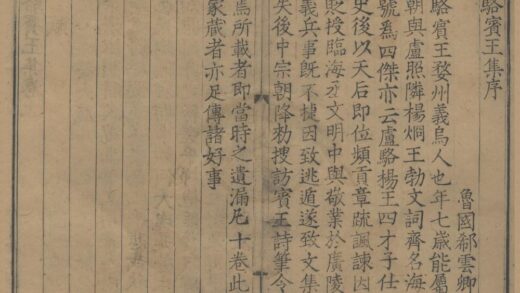 駱賓王集序
魯國郗雲卿
駱賓王婺州義烏人也年七歲能屬
朝與盧照隣楊烱王勃文詞齊名海
號爲四傑亦云盧駱楊王四才子仕
史後以天后即位頻貢章疏諷諫因
貶授臨海丞文明中與敬業於廣陵
義兵事旣不捷因致逃遁遂致文集
失後中宗朝降勑搜訪賓王詩筆今
焉所載者即當時之遺漏凡十卷此
家藏者亦足傳諸好事